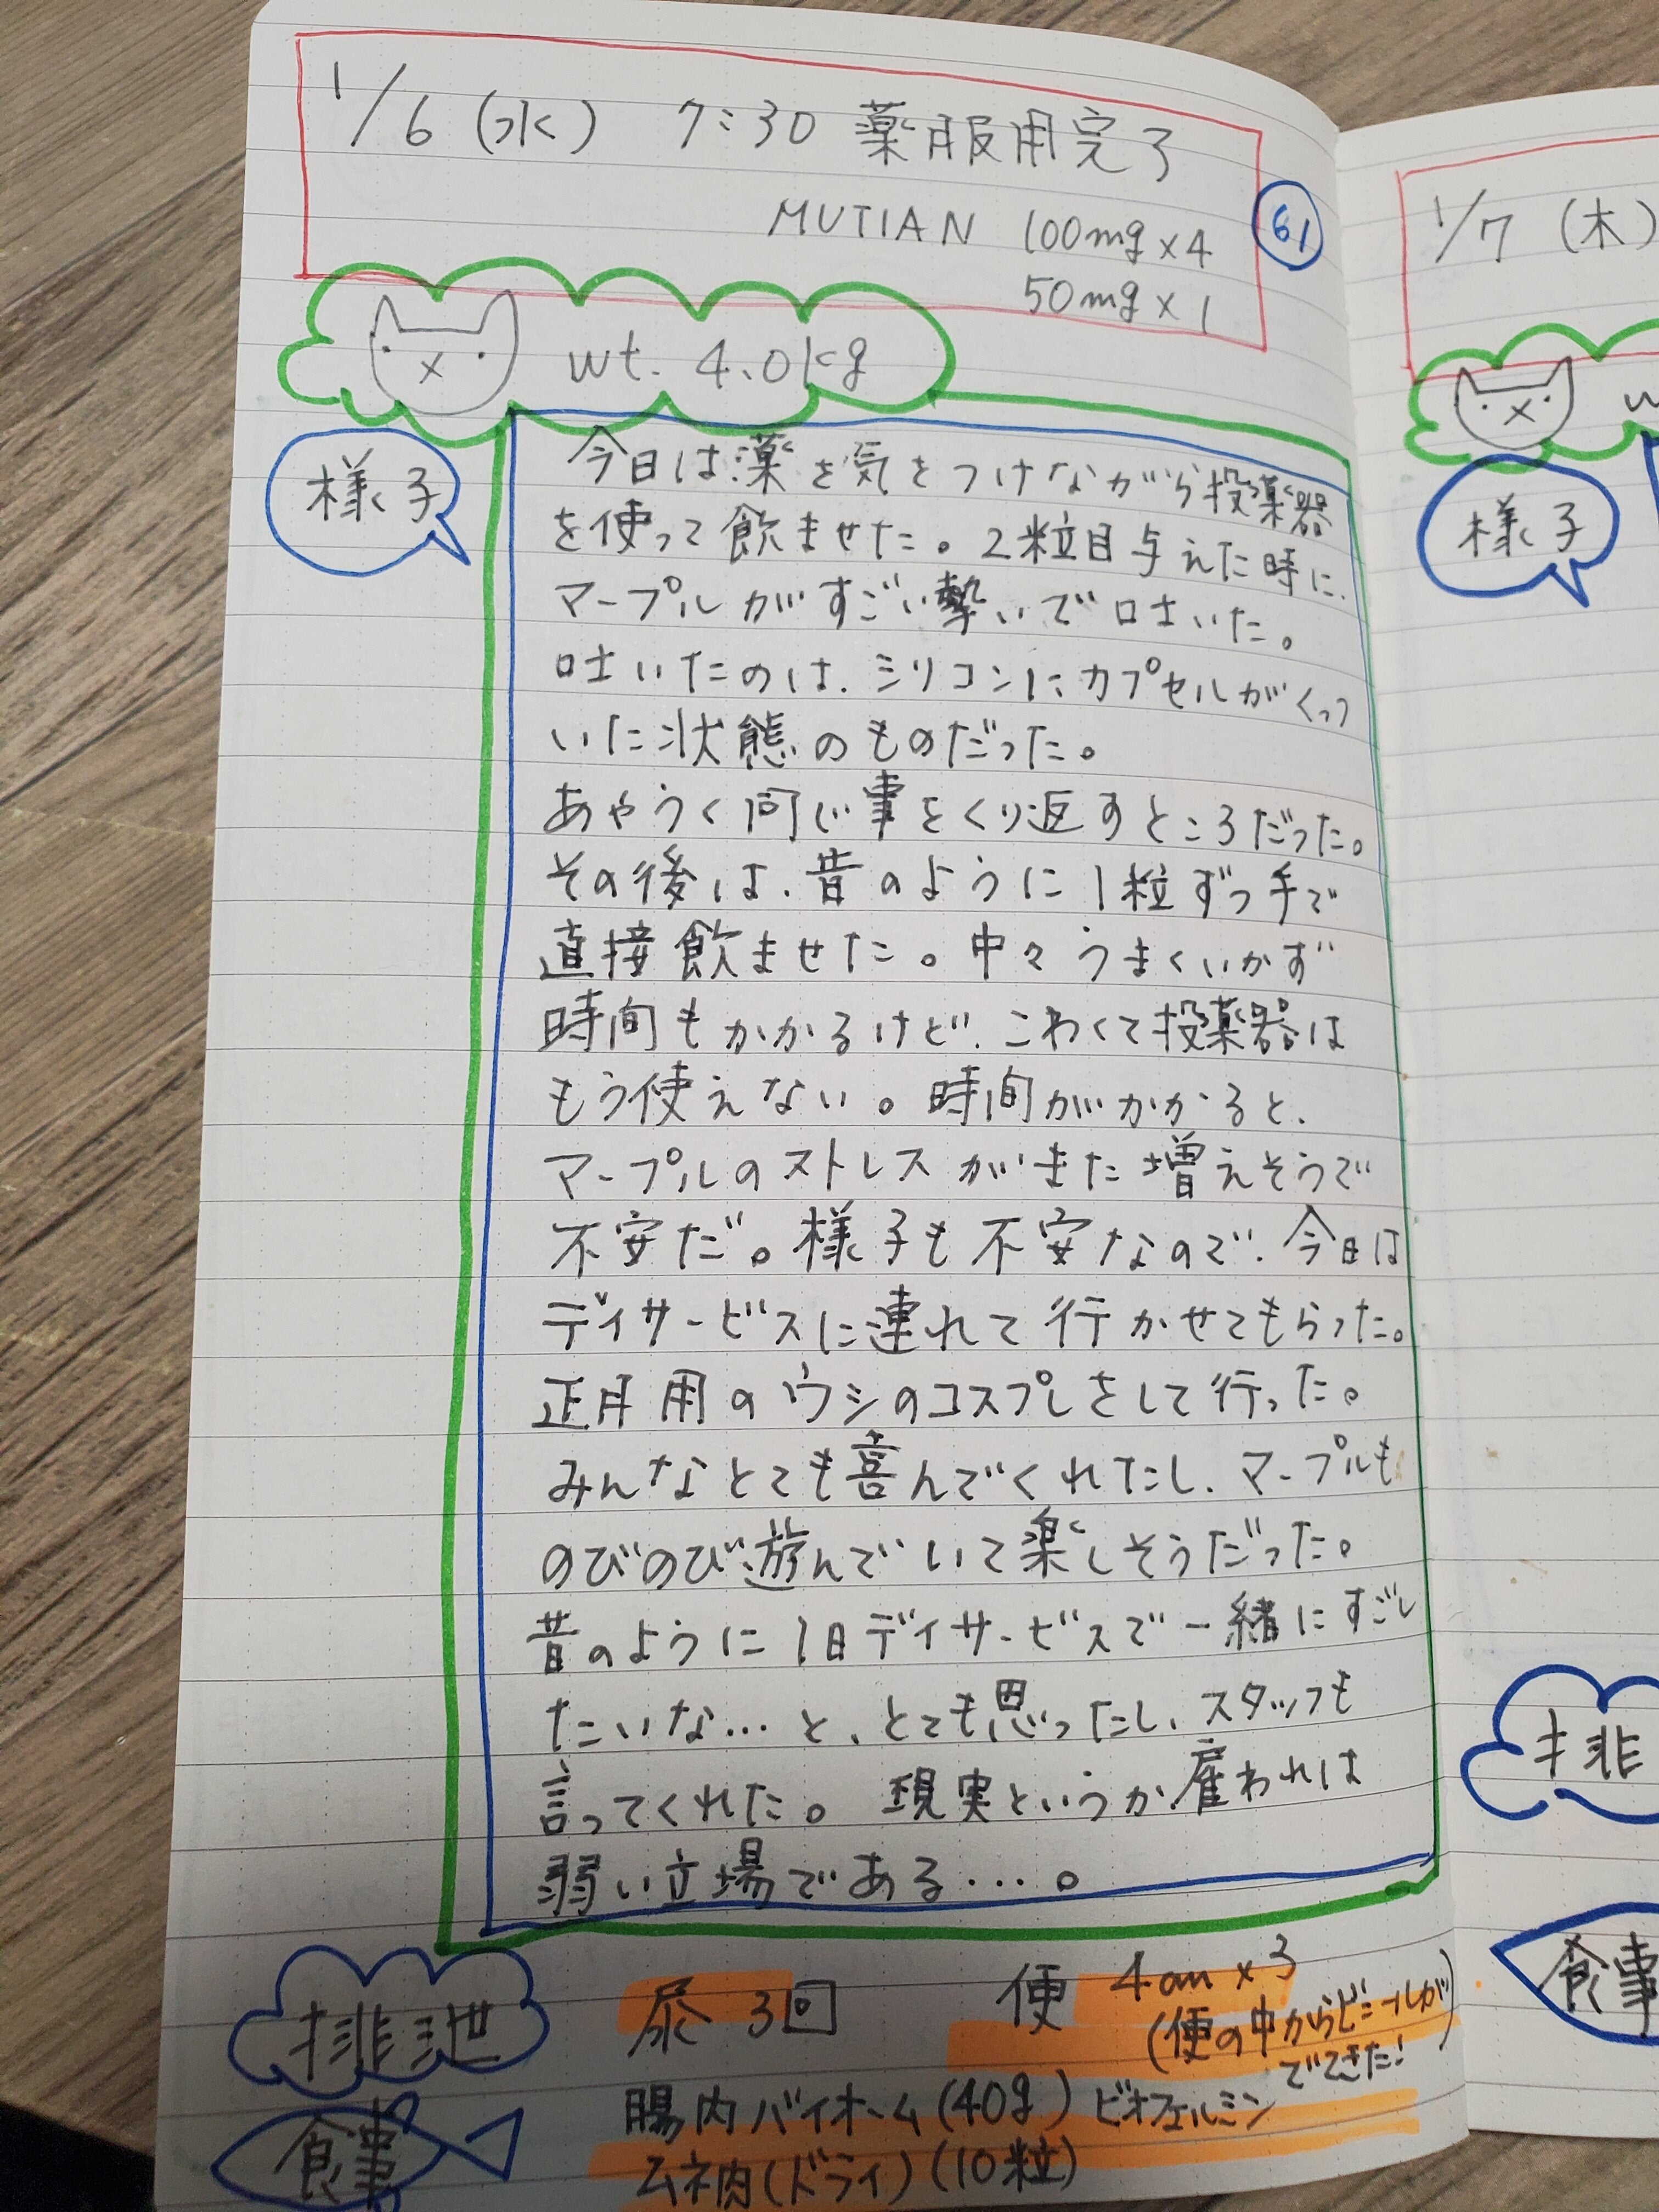 1/6 (水) 7:30 薬服用完了
MUTIAN 100mg×4
50mg×1
61
wt. 4.0kg
様子
今日は薬を気をつけながら投薬器
を使って飲ませた。2粒目与えた時に、
マープルがすごい勢いで吐いた。
吐いたのは、シリコンにカプセルがくっつ
いた状態のものだった。
あやうく同じ事をくり返すところだった。
その後は、昔のように1粒ずつ手で
直接飲ませた。中々うまくいかず
時間もかかるけど、こわくて投薬器は
もう使えない。時間がかかると、
マープルのストレスがまた増えそうで
不安だ。様子も不安なので、今日は
デイサービスに連れて行かせてもらった。
正月用のウシのコスプレをして行った。
みんなとても喜んでくれたし、マープルも
のびのび遊んでいて楽しそうだった。
昔のように1日デイサービスで一緒にすごし
たいな…と、とても思ったし、スタッフも
言ってくれた。現実というか雇われは
弱い立場である…。
排泄
尿 3回 便 4cm×3
(便の中からビニールが
でてきた!)
食事
腸内バイオーム(40g) ビオフェルミン
ムネ肉(ドライ)(10粒)
1/7 (木)
様子
排
食事